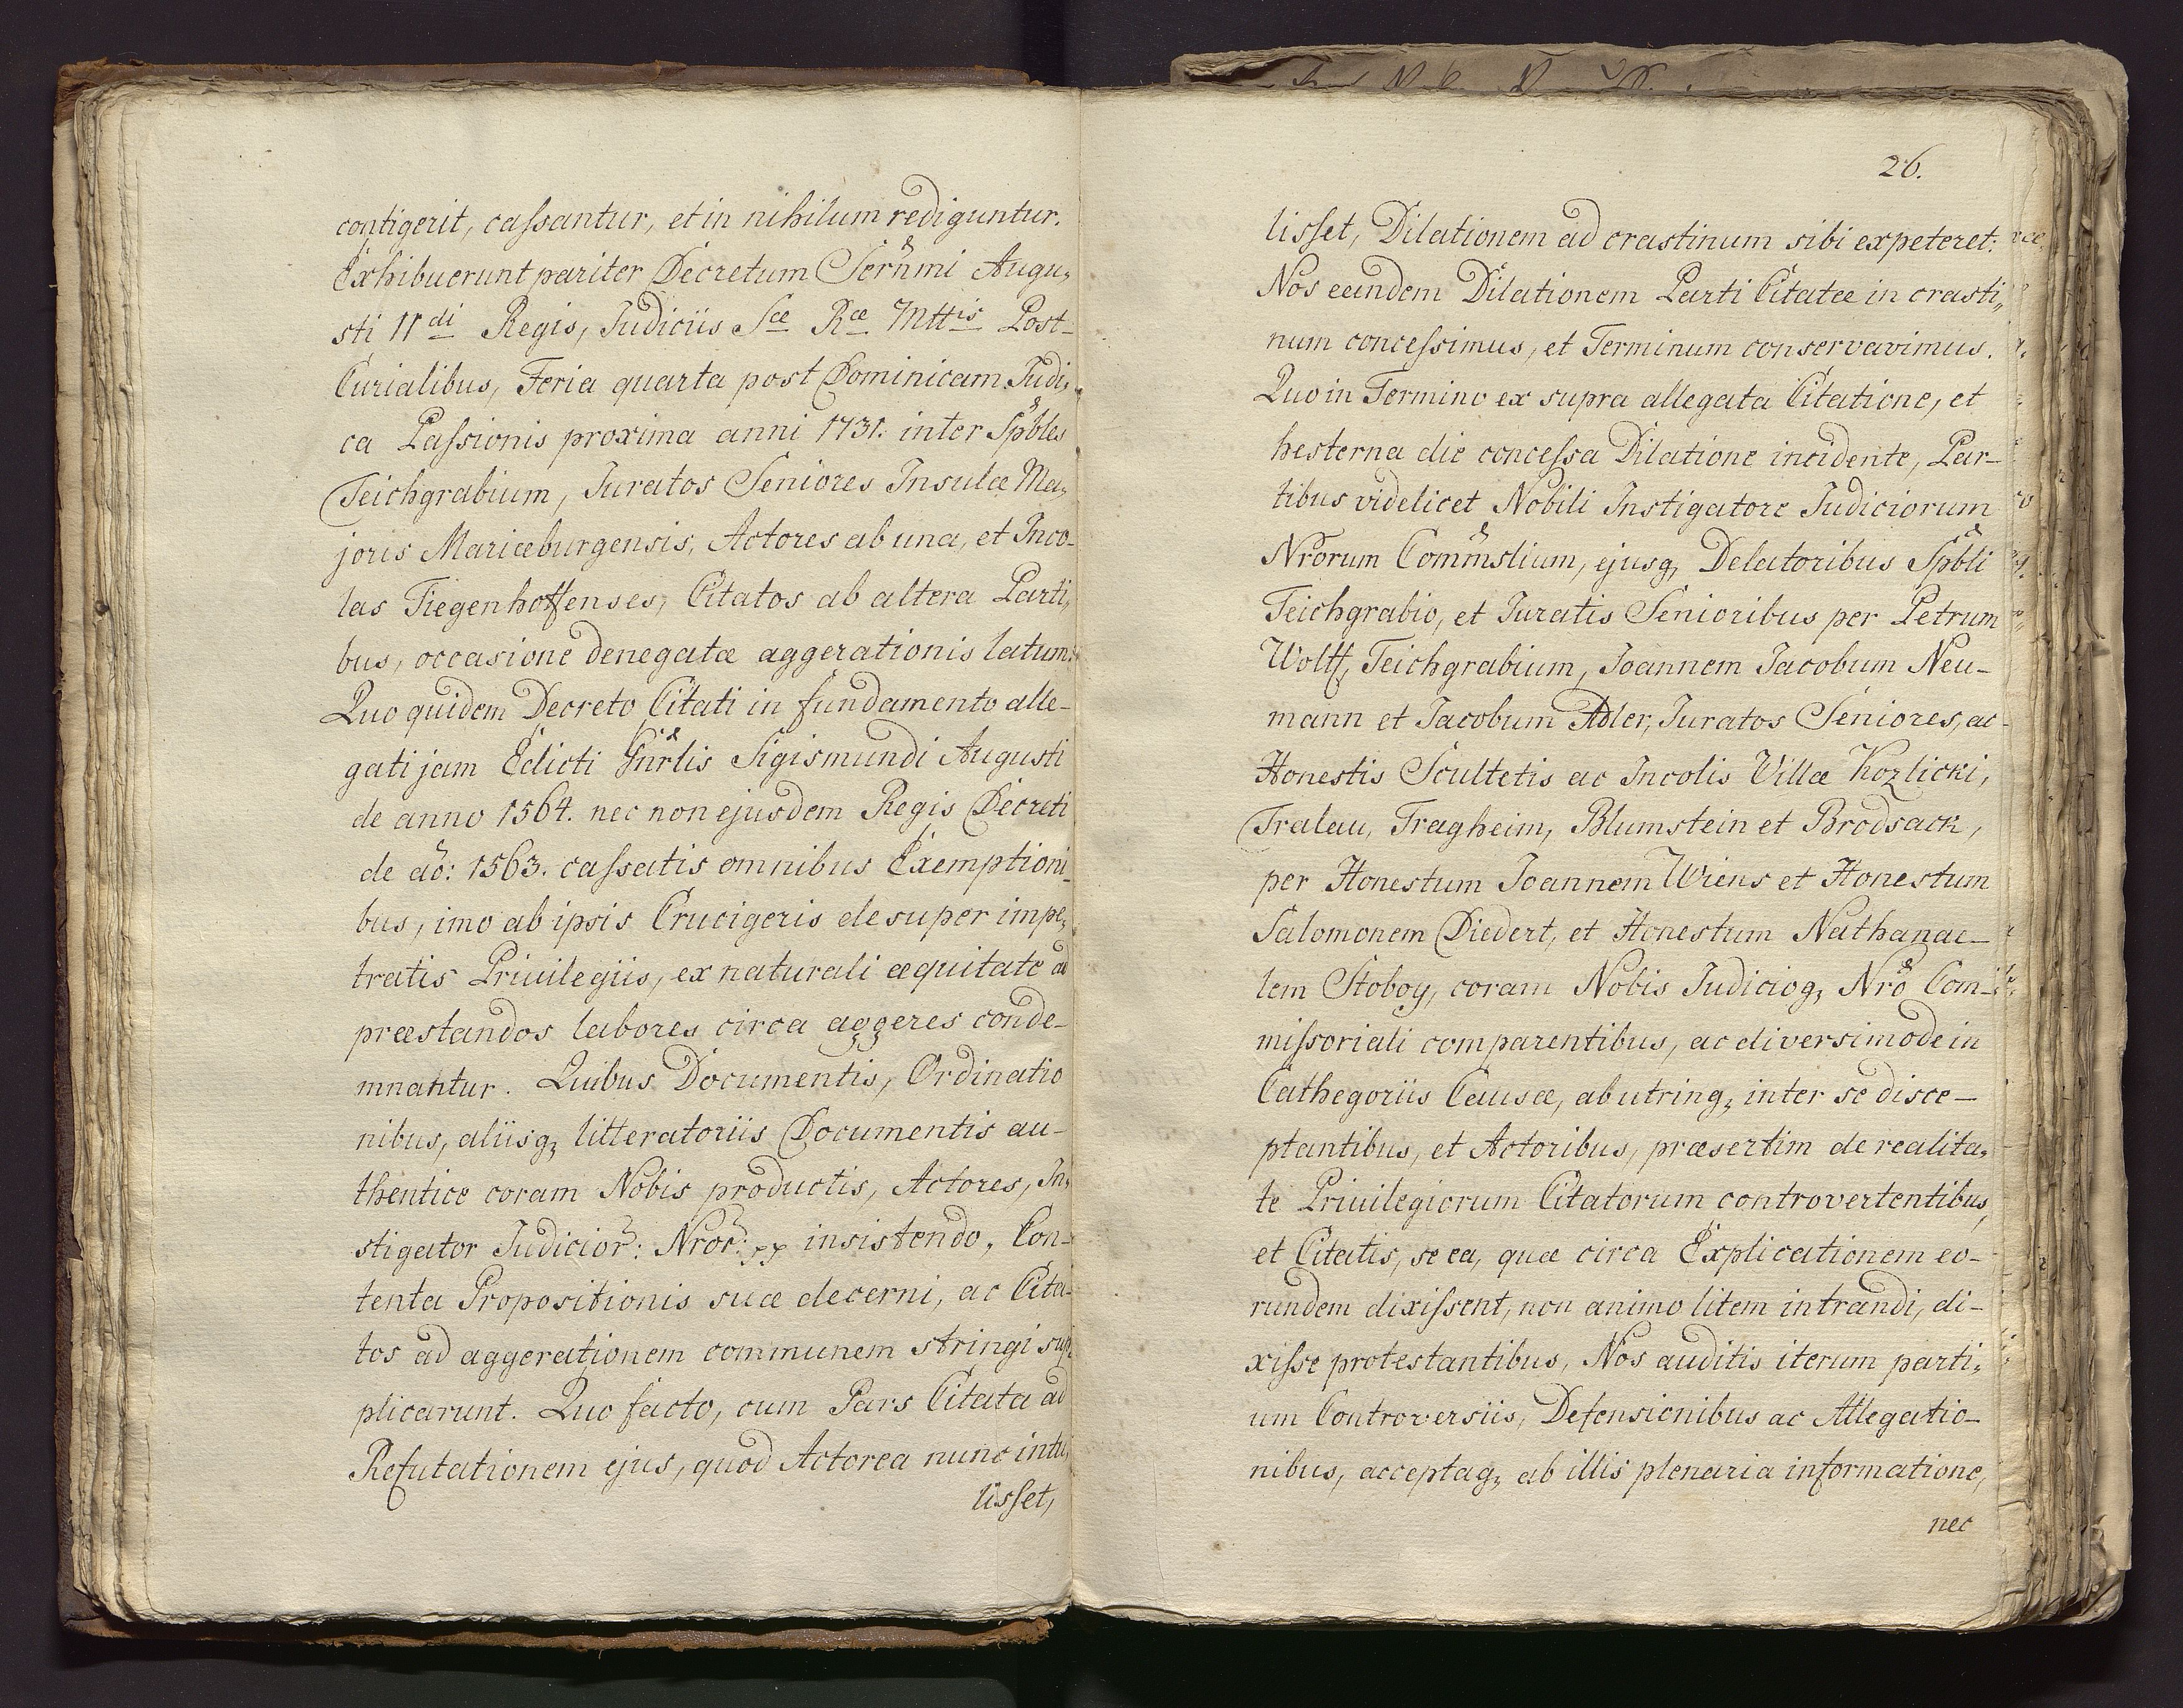 contigerit, cassantur, et in nihilum rediguntur.
Exhibuerunt pariter Decretum Sernmi Augu,
sti IIdi Regis, Judiciis Sæ Ræ Mttis Post-
Curialibus, Feria quarta post Dominicam Judi,
ca Passionis proxima anni 1731. inter Spbles
Teichgrabium, Juratos Seniores Insulæ Ma,
joris Mariæburgensis, Actores ab una, et Inco-
las Tiegenhoffenses, Citatos ab altera Parti,
bus, occasione denegatæ aggerationis latum:
Quo quidem Decreto Citati in fundamento alle-
gati jam Edicti Gnrlis Sigismundi Augusti
de anno 1564. nec non ejusdem Regis Decreti
de ao: 1563. cassatis omnibus Exemptioni-
bus, imo ab ipsis Crucigeris desuper impe,
tratis Priuilegiis, ex naturali æquitate ad
præstandos labores circa aggeres conde-
mnantur. Quibus Documentis, Ordinatio
nibus, aliisq, litteratoriis Documentis au-
thentice coram Nobis productis, Actores, In,
stigator Judicior: Nror: insistendo, Con-
tenta Propositionis suæ decerni, ac Cita-
tos ad aggerationem communem stringi sup,
plicarunt. Quo facto, cum Pars Citata ad
Refutationem ejus, quod Actorea nunc intu,
lisset,
26.
lisset, Dilationem ad crastinum sibi expeteret:
Nos eandem Dilationem Parti Citatæ in crasti,
num concessimus, et Terminum conservavimus.
Quo in Termino ex supra allegata Citatione, et
hesterna die concessa Dilatione incidente, Par-
tibus videlicet Nobili Instigatore Judiciorum
Nrorum Commslium, ejusq, Delatoribus Spbli
Teichgrabio, et Juratis Senioribus per Petrum
Wolff, Teichgrabium, Joannem Jacobum Neu-
mann et Jacobum Adler, Juratos Seniores, ac
Honestis Scultetis ac Incolis Villæ Kozlicki,
Tralau, Tragheim, Blumstein et Brodsack,
per Honestum Joannem Wiens et Honestum
Salomonem Diedert, et Honestum Nathanae-
lem Stoboy, coram Nobis Judicioq, Nro Com-
missoriali comparentibus, ac diversimode in
Cathegoriis Causæ, ab utrinq, inter se disce-
ptantibus, et Actoribus, præsertim de realita,
te Priuilegiorum Citatorum controvertentibus,
et Citatis, se ea, quæ circa Explicationem eo-
rundem dixissent, non animo litem intrandi, di-
xisse protestantibus, Nos auditis iterum parti,
um Controversiis, Defensionibus ac Allegatio-
nibus, acceptaq, ab illis plenaria informatione,
nec